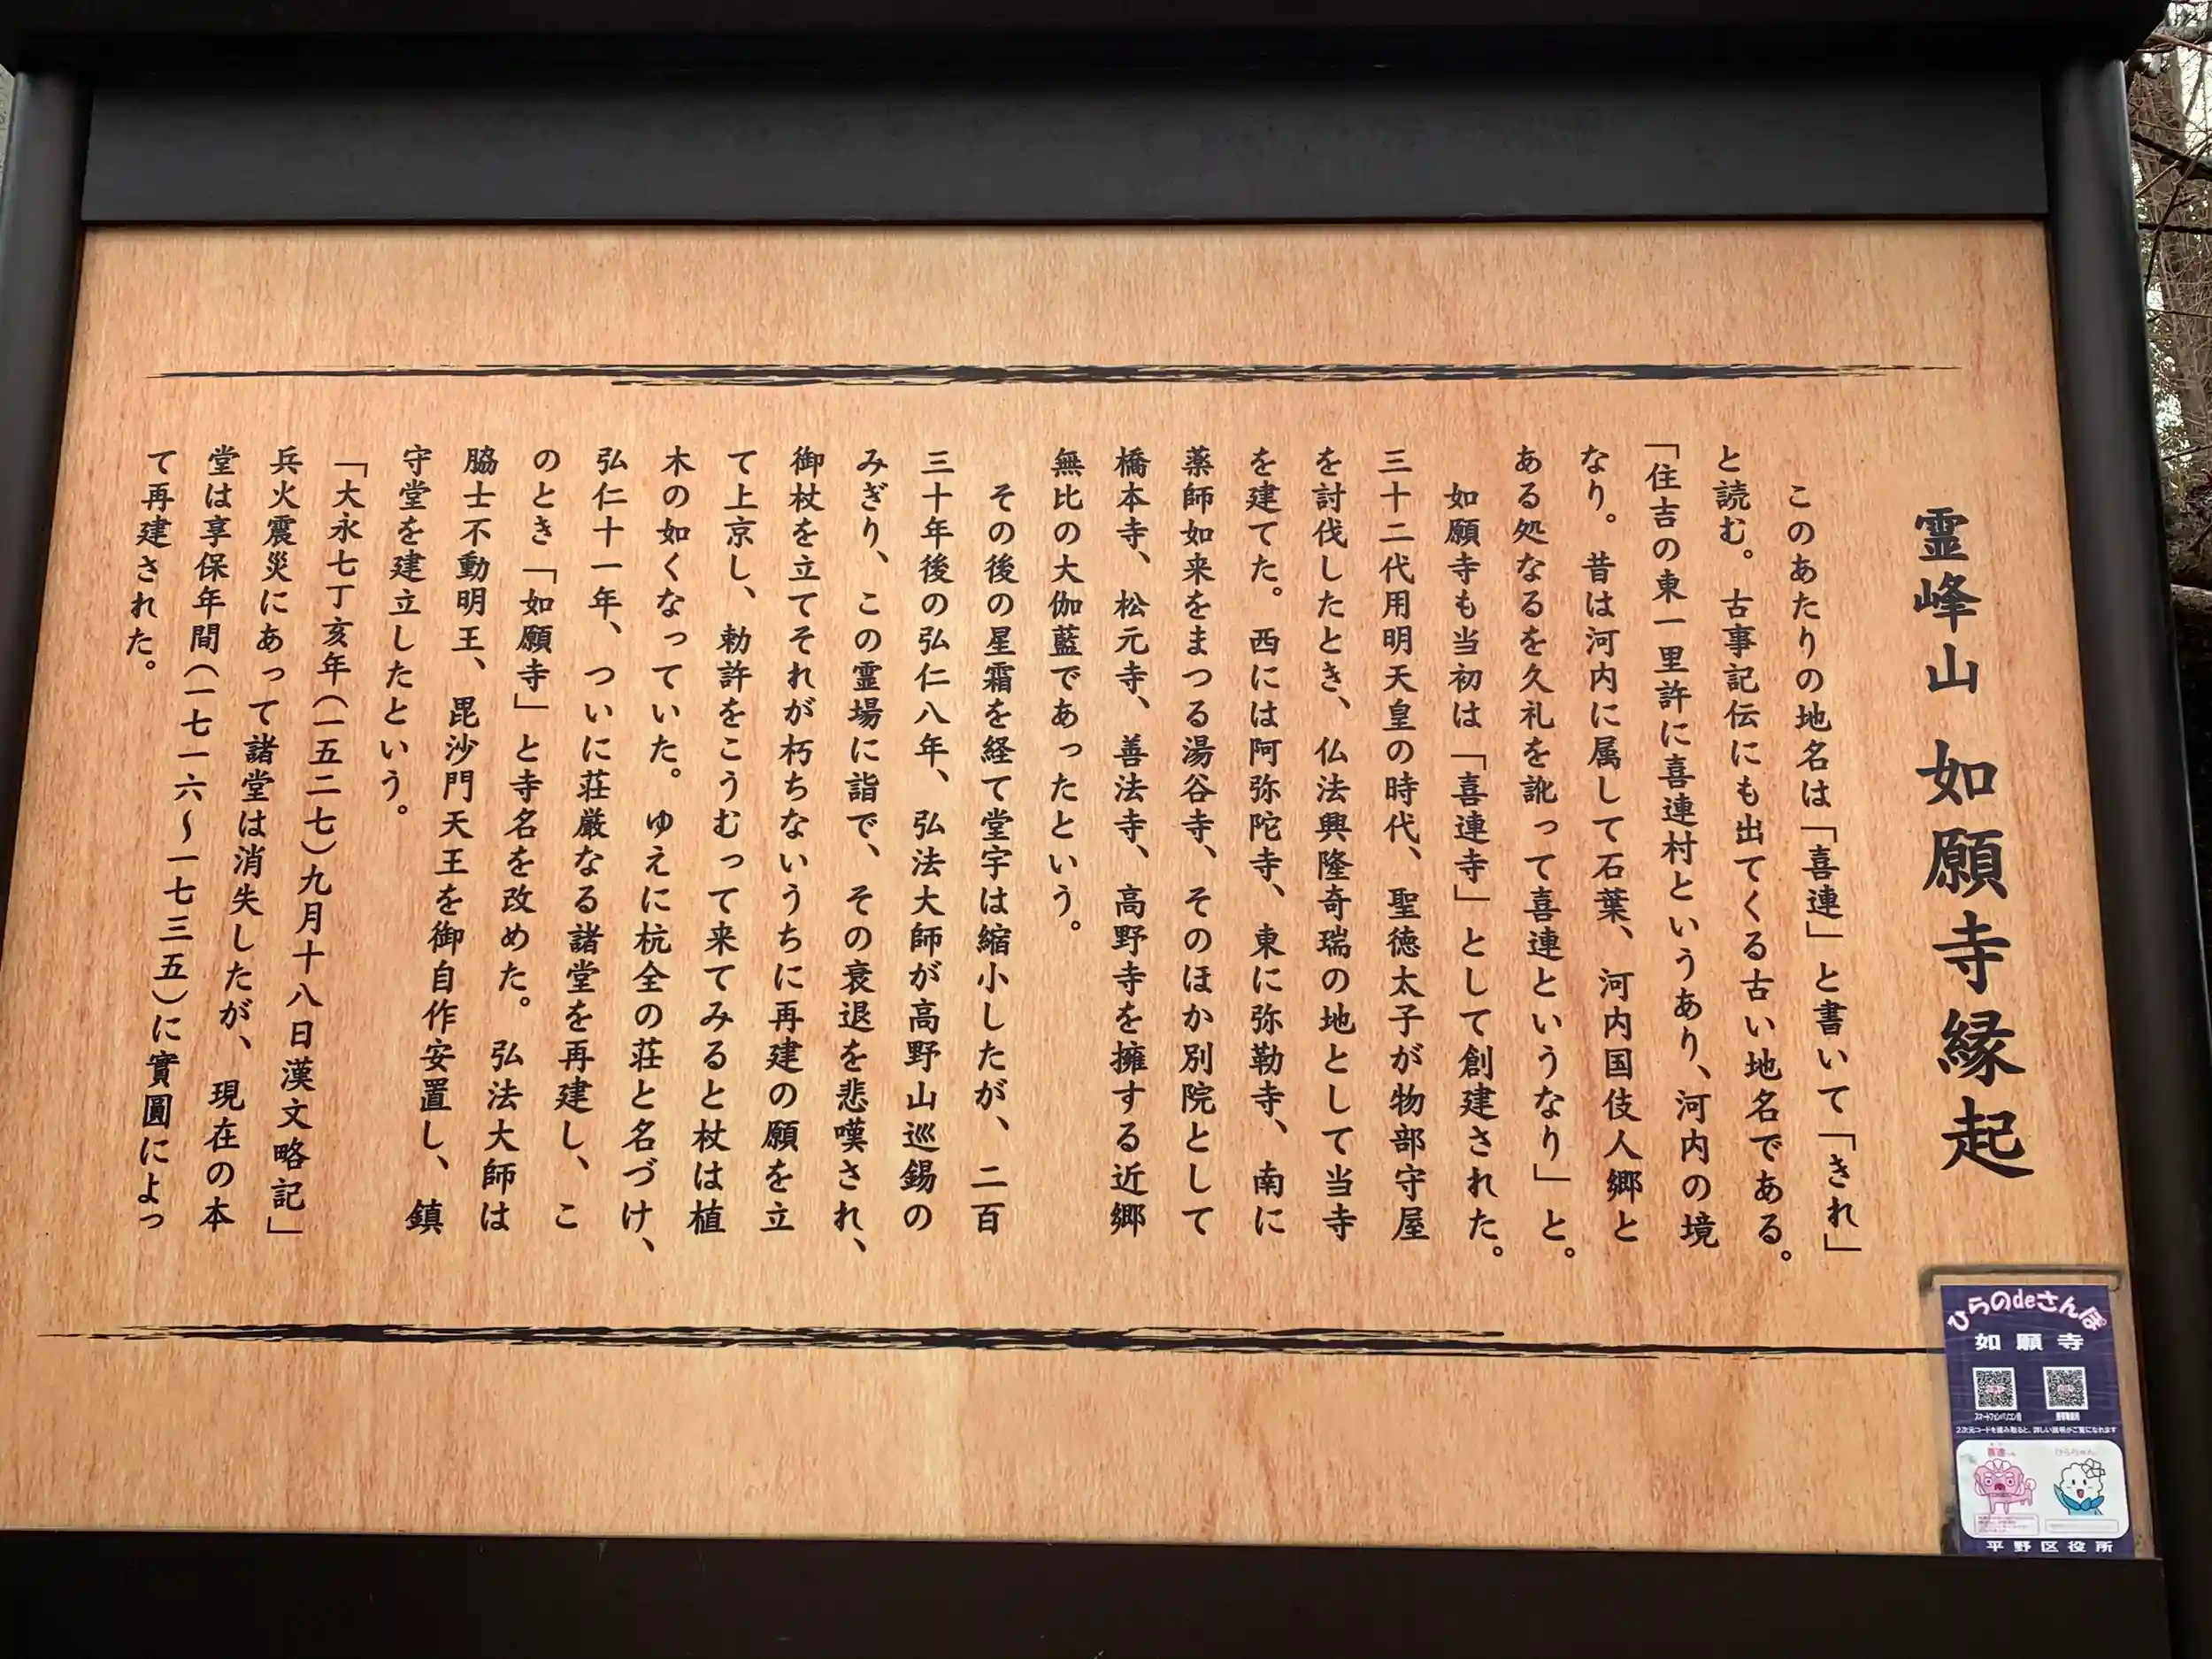 霊峰山 如願寺縁起
このあたりの地名は「喜連」と書いて「きれ」
と読む。古事記伝にも出てくる古い地名である。
「住吉の東一里許に喜連村というあり、河内の境
なり。昔は河内に属して石葉、河内国伎人郷と
ある処なるを久礼を訛って喜連というなり」と。
如願寺も当初は「喜連寺」として創建された。
三十二代用明天皇の時代、聖徳太子が物部守屋
を討伐したとき、仏法興隆奇瑞の地として当寺
を建てた。西には阿弥陀寺、東に弥勒寺、南に
薬師如来をまつる湯谷寺、そのほか別院として
橋本寺、松元寺、善法寺、高野寺を擁する近郷
無比の大伽藍であったという。
その後の星霜を経て堂宇は縮小したが、二百
三十年後の弘仁八年、弘法大師が高野山巡錫の
みぎり、この霊場に詣で、その衰退を悲嘆され、
御杖を立てそれが朽ちないうちに再建の願を立
て上京し、勅許をこうむって来てみると杖は植
木の如くなっていた。ゆえに杭全の荘と名づけ、
弘仁十一年、ついに荘厳なる諸堂を再建し、こ
のとき「如願寺」と寺名を改めた。弘法大師は
脇士不動明王、毘沙門天王を御自作安置し、鎮
守堂を建立したという。
「大永七丁亥年（一五二七）九月十八日漢文略記」
兵火震災にあって諸堂は消失したが、現在の本
堂は享保年間（一七一六～一七三五）に實圓によっ
て再建された。
ひらのdeさんぽ
如願寺
スマートフォン/パソコン用
携帯電話用
2次元コードを読み取ると、詳しい説明がご覧になれます
平野区役所